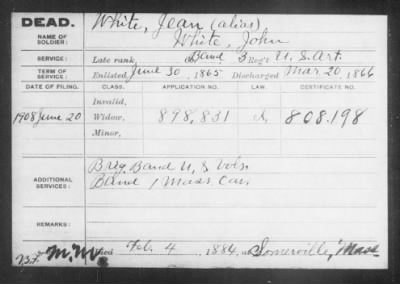 DEAD.
NAME OF SOLDIER:
White, Jean (alias)
White, John
SERVICE:
Late rank, Band 3 Reg't U. S. Art.
TERM OF SERVICE:
Enlisted June 30, 1865 Discharged Mar. 20, 1866
DATE OF FILING. CLASS. APPLICATION NO. CERTIFICATE NO.
Invalid,
1908 June 20 Widow, 898,831 808.198
Minor,
ADDITIONAL SERVICES:
Brig. Band U. S. Vols.
Band 1 Mass. Cav.
REMARKS:
Died Feb. 4, 1884, at Somerville, Mass